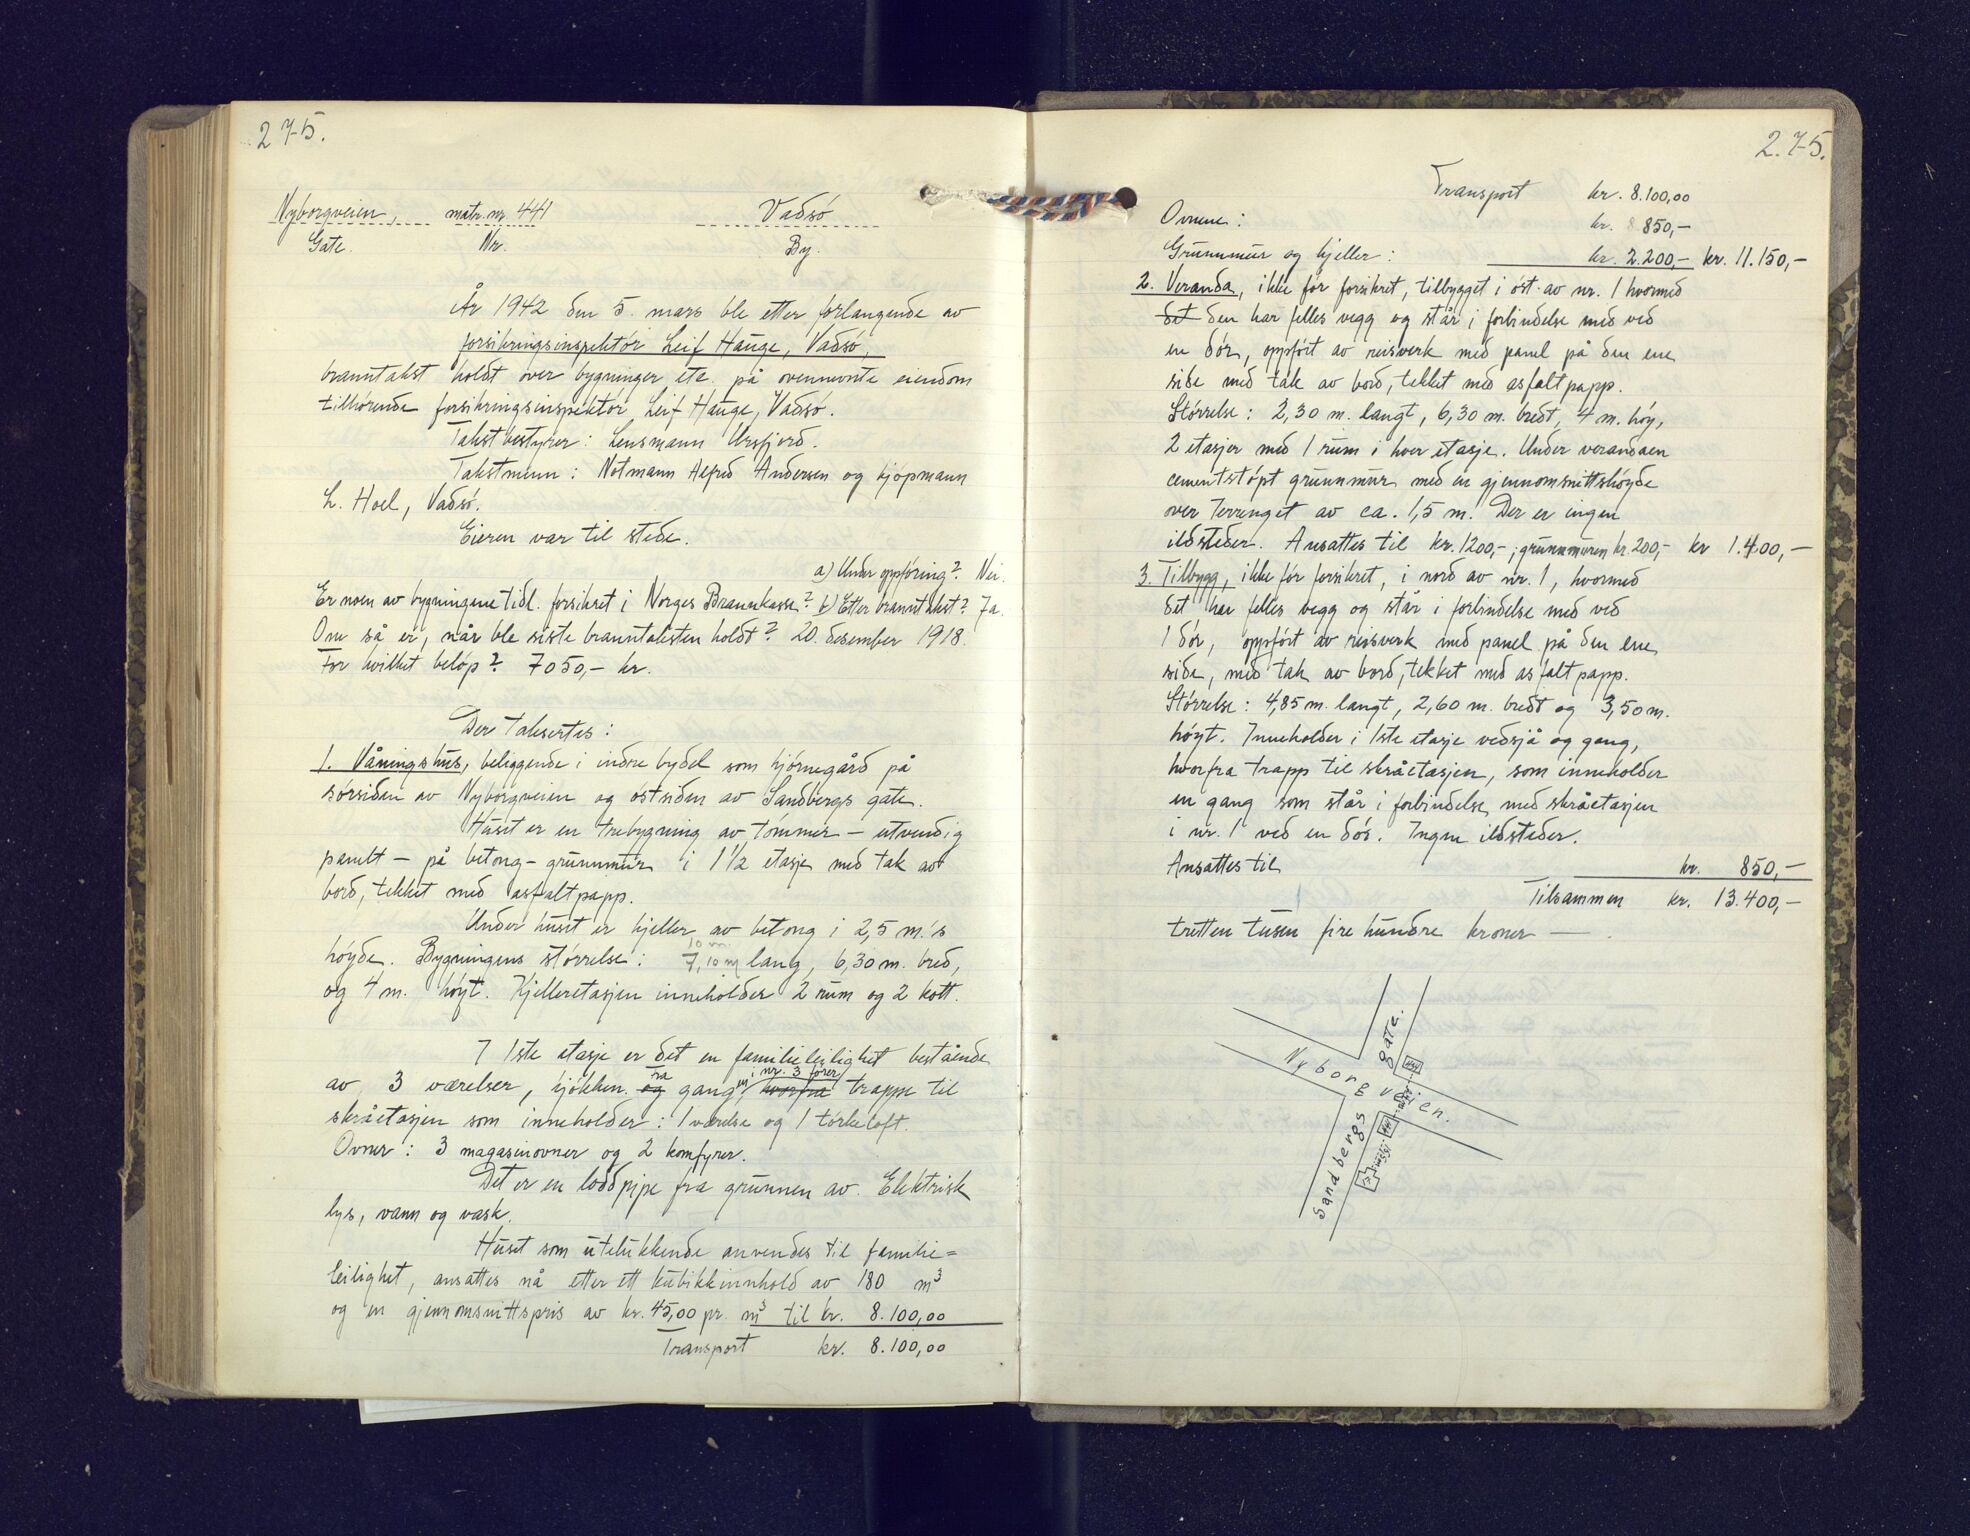 275.
Nyborgveien, matr. nr. 441 Vadsö
Gate. Nr. By.
År 1942 den 5. mars ble etter forlangende av
forsikringsinspektör Leif Hauge, Vadsö,
branntakst holdt over bygninger etc. på ovennevnte eiendom
tilhörende forsikringsinspektör Leif Hauge, Vadsö.
Takstbestyrer: Lensmann Ursfjord.
Takstmenn: Notmann Alfred Andersen og kjöpmann
L. Hoel, Vadsö.
Eieren var til stede.
a) Under oppföring? Nei.
Er noen av bygningene tidl. forsikret i Norges Brannkasse? b) Etter branntakst? Ja.
Om så er, når ble siste branntaksten holdt? 20. desember 1918.
For hvilket belöp? 7050,- kr.
Der taksertes:
1. Våningshus, beliggende i indre bydel som hjörnegård på
sörsiden av Nyborgveien og östsiden av Sandbergs gate.
Huset er en trebygning av tömmer – utvendig
panelt – på betong-grunnmur i 1 1/2 etasje med tak av
bord, tekket med asfaltpapp.
Under huset er kjeller av betong i 2,5 m.'s
höyde. Bygningens störrelse: 7,10 m lang, 6,30 m. bred,
10 m
og 4 m. höyt. Kjelleretasjen inneholder 2 rum og 2 kott.
I 1ste etasje er det en familieleilighet bestående
av 3 værelser, kjökken og gang, hvorfra trappe til
i nr. 3 förer
skråetasjen som inneholder: 1 værelse og 1 törkeloft.
Ovner: 3 magasinovner og 2 komfyrer.
Det er en loddpipe fra grunnen av. Elektrisk
lys, vann og vask.
Huset som utelukkende anvendes til familie=
leilighet, ansattes nå etter ett kubikkinnhold av 180 m³
og en gjennomsnittspris av kr. 45,00 pr. m³ til kr. 8.100,00
Transport kr. 8.100,00
2.75.
Transport kr. 8.100,00
Ovnene: kr. 850,-
Grunnmur og kjeller: kr. 2.200,- kr. 11.150,-
2. Veranda, ikke för forsikret, tilbygget i öst av nr. 1 hvormed
det den har felles vegg og står i forbindelse med ved
en dör, oppfört av reisverk med panel på den ene
side med tak av bord, tekket med asfaltpapp.
Störrelse: 2,30 m. langt, 6,30 m. bredt, 4 m. höy,
2 etasjer med 1 rum i hver etasje. Under verandaen
cementstöpt grunnmur med en gjennomsnittshöyde
over terrenget av ca. 1,5 m. Der er ingen
ildsteder. Ansattes til kr. 1200,-; grunnmuren kr. 200,- kr 1.400,-
3. Tilbygg, ikke för forsikret, i nord av nr. 1, hvormed
det har felles vegg og står i forbindelse med ved
1 dör, oppfört av reisverk med panel på den ene
side, med tak av bord, tekket med asfaltpapp.
Störrelse: 4,85 m. langt, 2,60 m. bredt og 3,50 m.
höyt. Inneholder i 1ste etasje vedsjå og gang,
hvorfra trapp til skråetasjen, som inneholder
en gang som står i forbindelse med skråetasjen
i nr. 1 ved en dör. Ingen ildsteder.
Ansattes til kr. 850,-
Tilsammen kr. 13.400,-
tretten tusen fire hundre kroner —.
Nyborgveien.
Sandbergs gate.